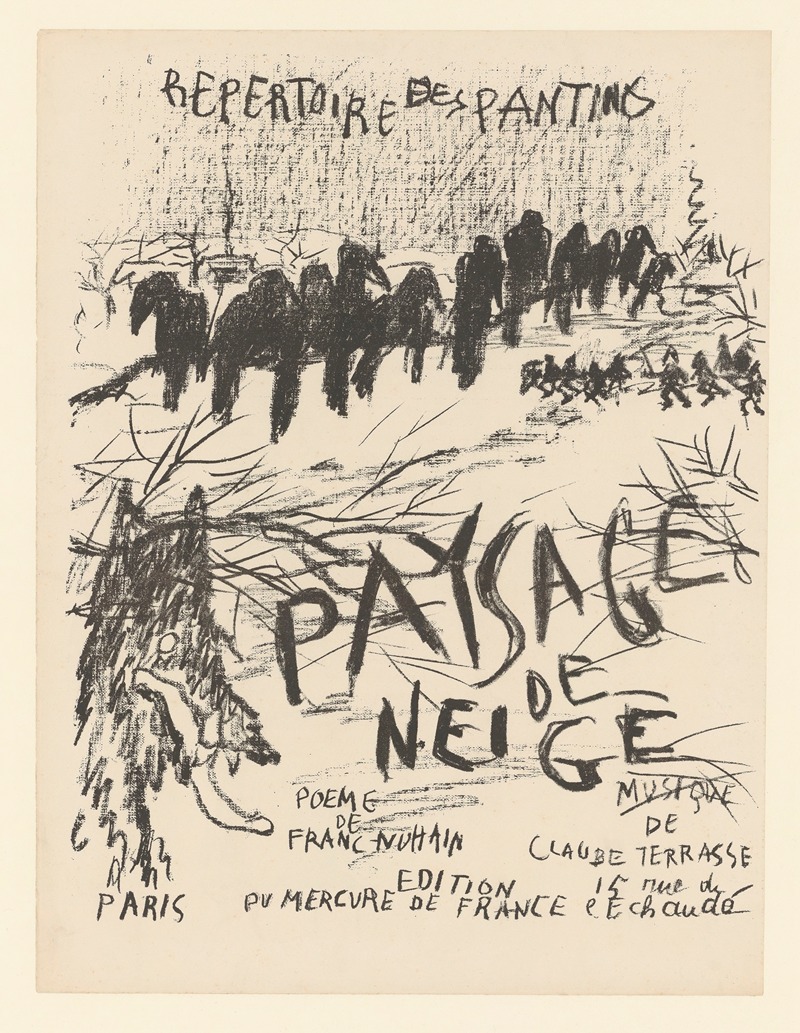 REPERTOIRE DES PANTINS
PAYSAGE
DE
NEIGE
POEME
DE
FRANC-NOHAIN
MUSIQUE
DE
CLAUDE TERRASSE
PARIS
EDITION
DU MERCURE DE FRANCE
15 rue de
l'Echaudé